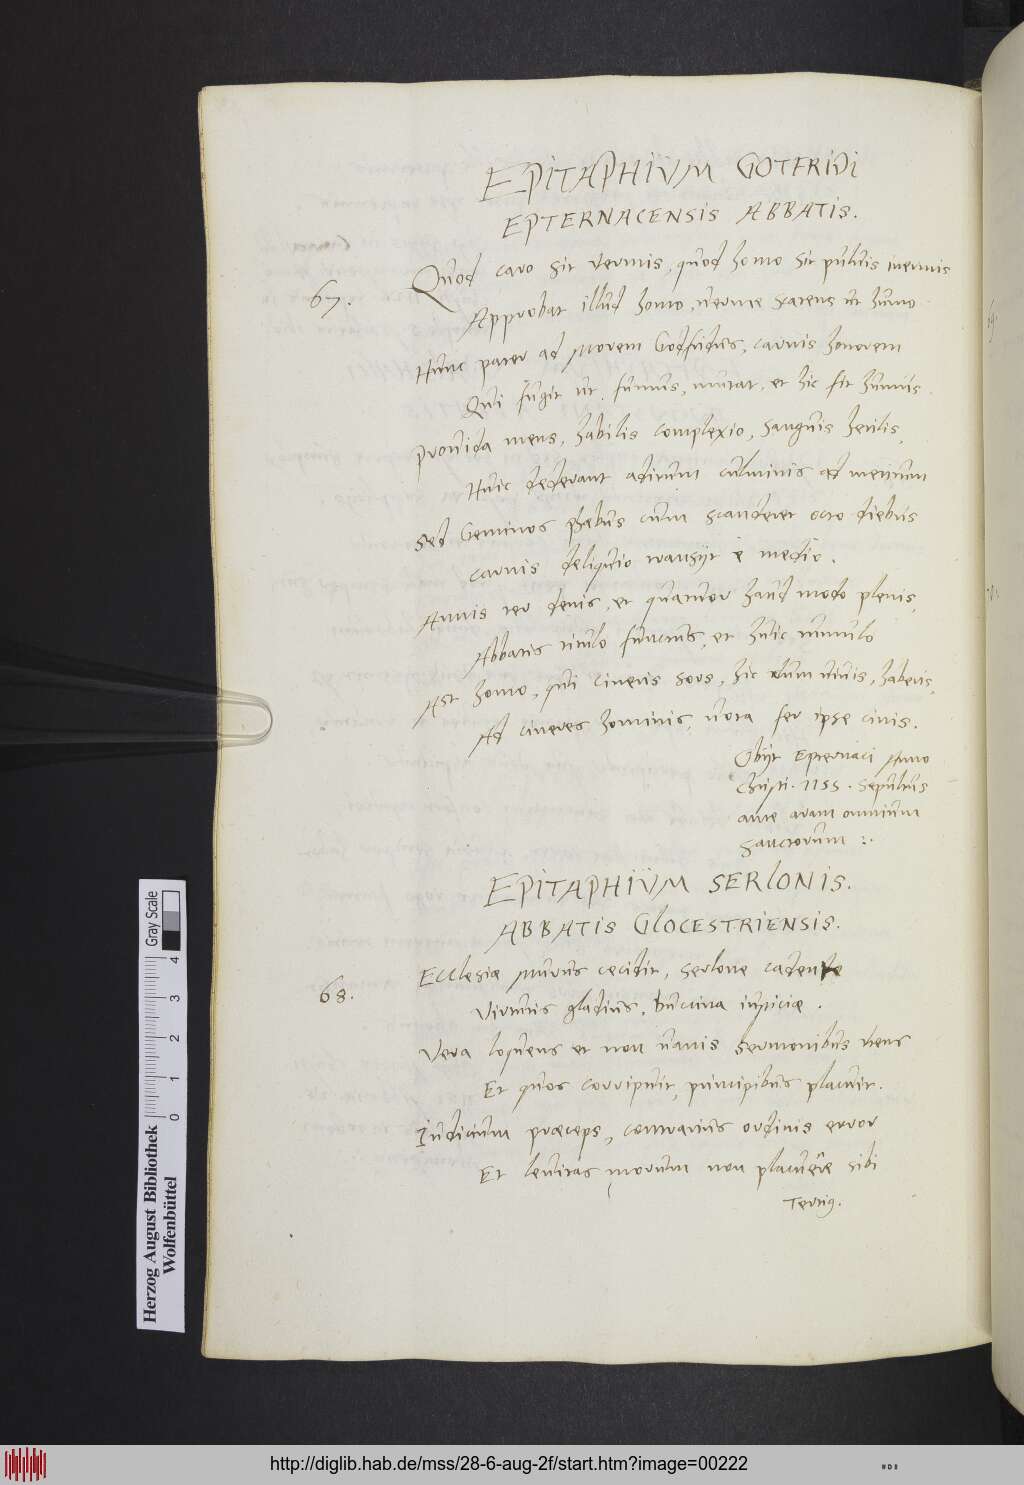 EPITAPHIVM GOTFRIDI
EPTERNACENSIS ABBATIS.
67.
Quod caro sit vermis, quod homo sit pulvis inermis
Approbat illud homo, verme scatens ut humo.
Hunc pater ad morem Godfridus, carnis honorem
Qui fugit ut fumus, mutat, et hic fit humus.
Provida mens, habilis complexio, sanguis herilis,
Huic dederant aditum culminis ad meritum
Sed Geminos phæbus cum scanderet octo diebus
Carnis deliquio transijt è medio.
Annis ter denis, et quatuor haud modo plenis,
Abbatis titulo functus, et huic tumulo
Ast homo, qui cineris sors, hic dum vivis, haberis,
Ad cineres hominis, vota fer ipse cinis.
Obijt Epternaci Anno
Christi. 1155. Sepultus
ante aram omnium
Sanctorum :.
EPITAPHIVM SERLONIS.
ABBATIS GLOCESTRIENSIS.
68.
Ecclesiæ murus cecidit, Serlone cadente
Virtutis gladius, buccina iusticiæ.
Vera loquens et non vanis sermonibus utens
Et quos corripuit, principibus placuit.
Iudicium præceps, contrarius ordinis error
Et levitas morum non placuêre sibi
Tertiq.
Herzog August Bibliothek
Wolfenbüttel
0 1 2 3 4
Gray Scale
http://diglib.hab.de/mss/28-6-aug-2f/start.htm?image=00222